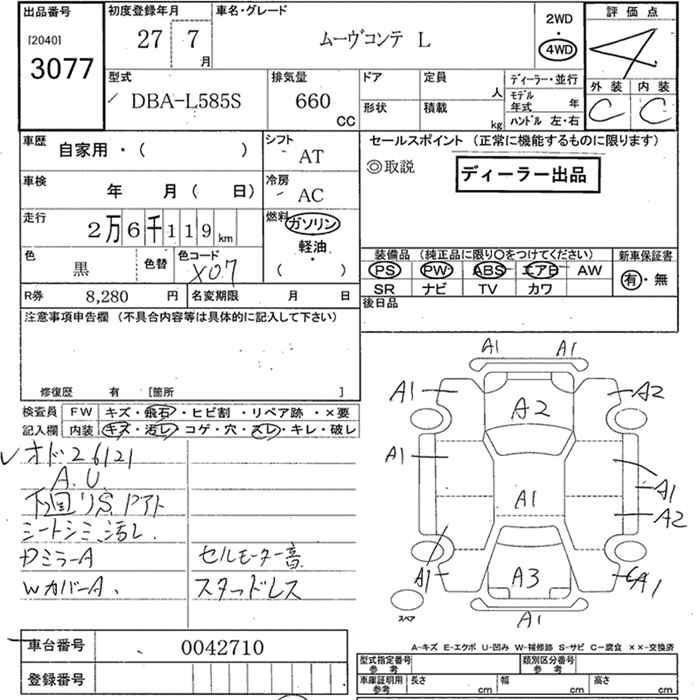 出品番号
[2040]
3077
初度登録年月
27 7
月
車名・グレード
ムーヴコンテ L
2WD
4WD
評価点
4
外装 内装
C C
型式
DBA-L585S
排気量
660
CC
ドア
形状
定員
人
積載
kg
ディーラー・並行
モデル
年式 年
ハンドル 左・右
車歴
自家用・( )
シフト
AT
車検
年 月( 日)
冷房
AC
走行
2万6千119km
燃料
ガソリン
軽油
( )
色
黒
色替
色コード
X07
R券 8,280 円
名変期限 月 日
セールスポイント (正常に機能するものに限ります)
◎取説
ディーラー出品
装備品 (純正品に限り〇をつけてください)
PS PW ABS エアB AW
SR ナビ TV カワ
新車保証書
有・無
後日品
注意事項申告欄 (不具合内容等は具体的に記入して下さい)
修復歴 有 [箇所 ]
検査員
記入欄
FW キズ・飛石・ヒビ割・リペア跡・×要
内装 キズ・汚レ・コゲ・穴・スレ・キレ・破レ
オド26121
A.U.
下回りS.アト
シートシミ.汚レ.
Wカバ-A.
セルモーター音
スタッドレス
A1 A1
A1 A2
A2
A1
A1
A1
A2
A1
A3
A1
A1
スペア
A-キズ E-エクボ U-凹み W-補修跡 S-サビ C-腐食 ××-交換済
車台番号 0042710
登録番号
型式指定番号
参考
類別区分番号
参考
車庫証明用
参考
長さ cm
幅 cm
高さ cm